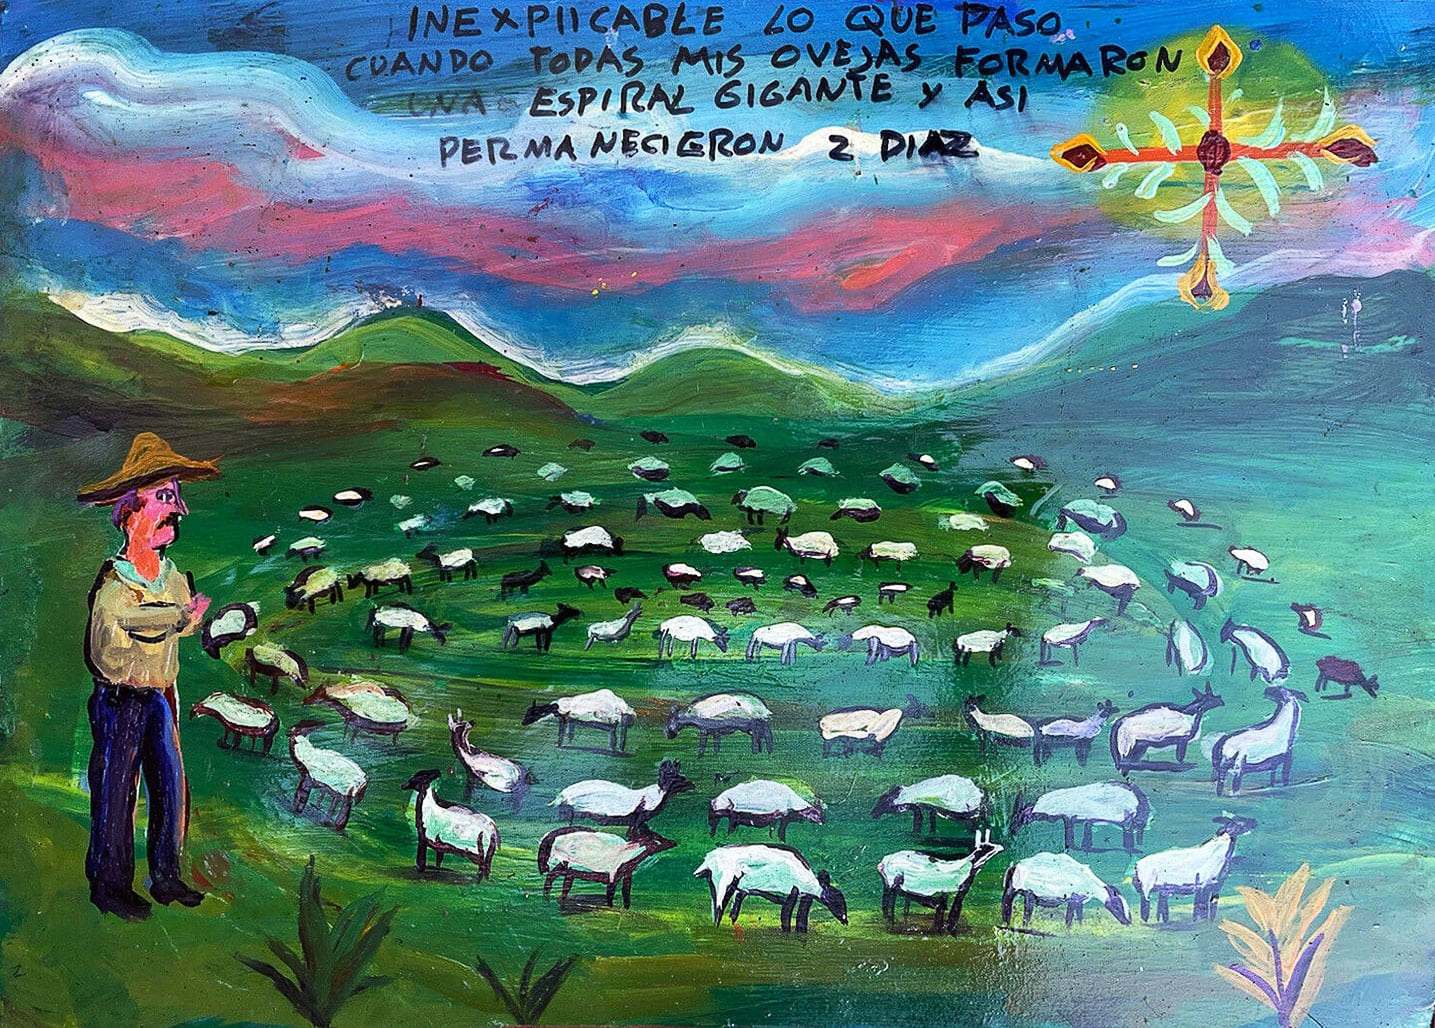 INEXPIICABLE LO QUE PASO
CUANDO TODAS MIS OVEJAS FORMARON
UNA ESPIRAL GIGANTE Y ASI
PERMANECIERON 2 DIAZ